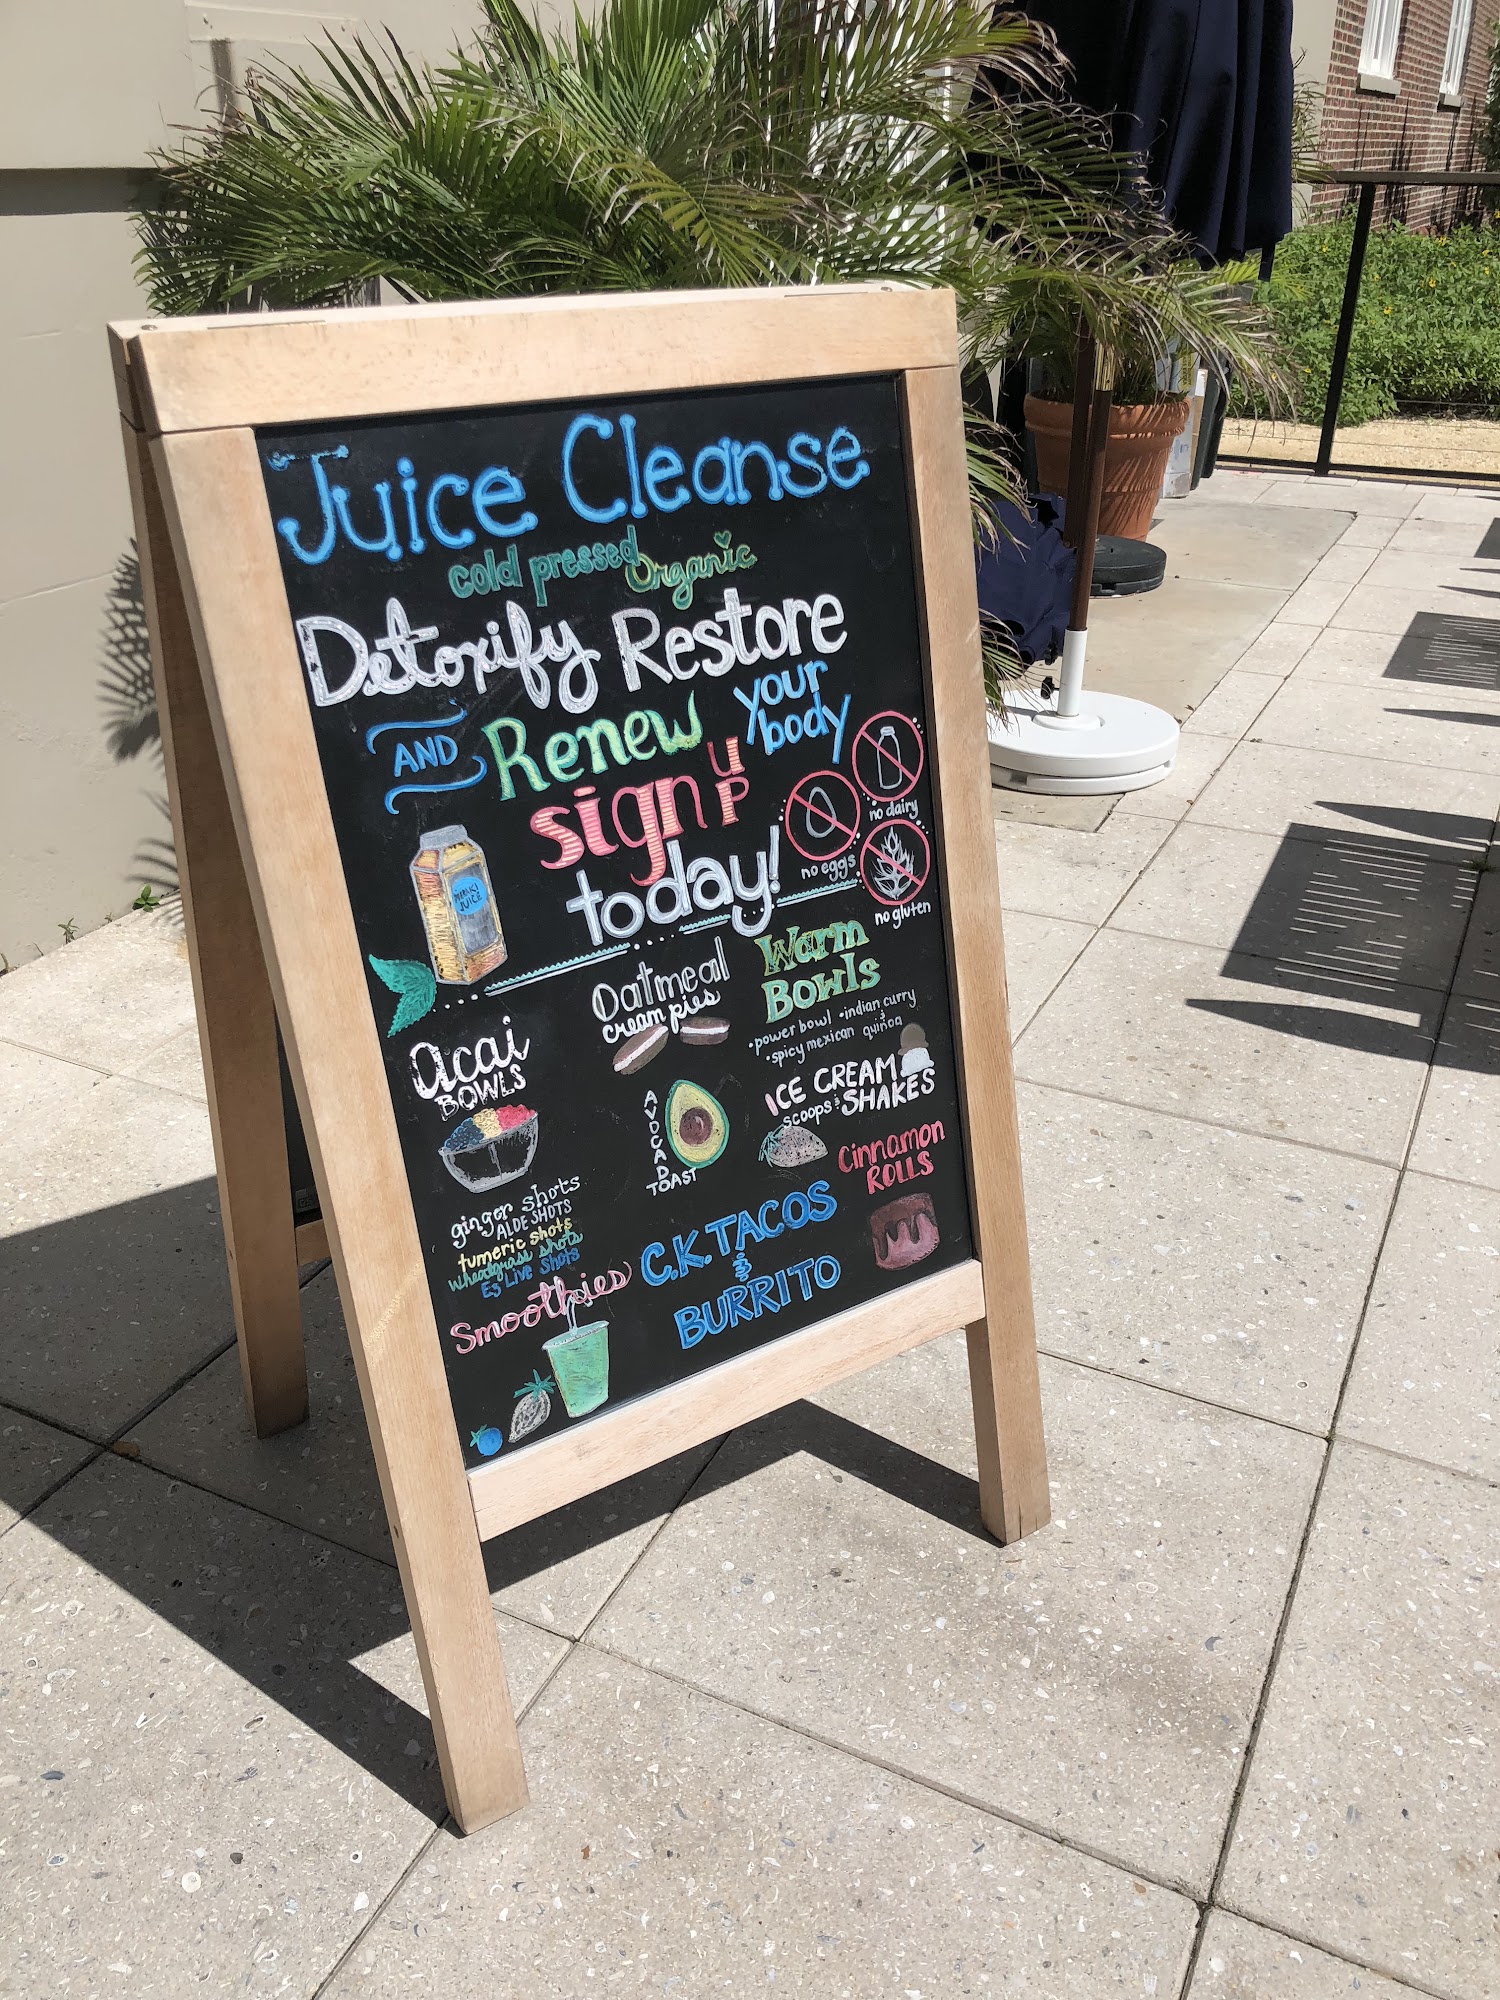 Juice Cleanse
cold pressed Organic
Detoxify Restore
AND Renew your body
sign UP
today!
no dairy
no eggs
no gluten
JUICE
Oatmeal
cream pies
Warm
Bowls
•power bowl •indian curry
•spicy mexican & quinoa
Acai
BOWLS
AVOCADO
TOAST
ICE CREAM
scoops & SHAKES
Cinnamon
ROLLS
ginger shots
ALOE SHOTS
tumeric shots
wheatgrass shots
E3 Live Shots
Smoothies
C.K. TACOS
&
BURRITO